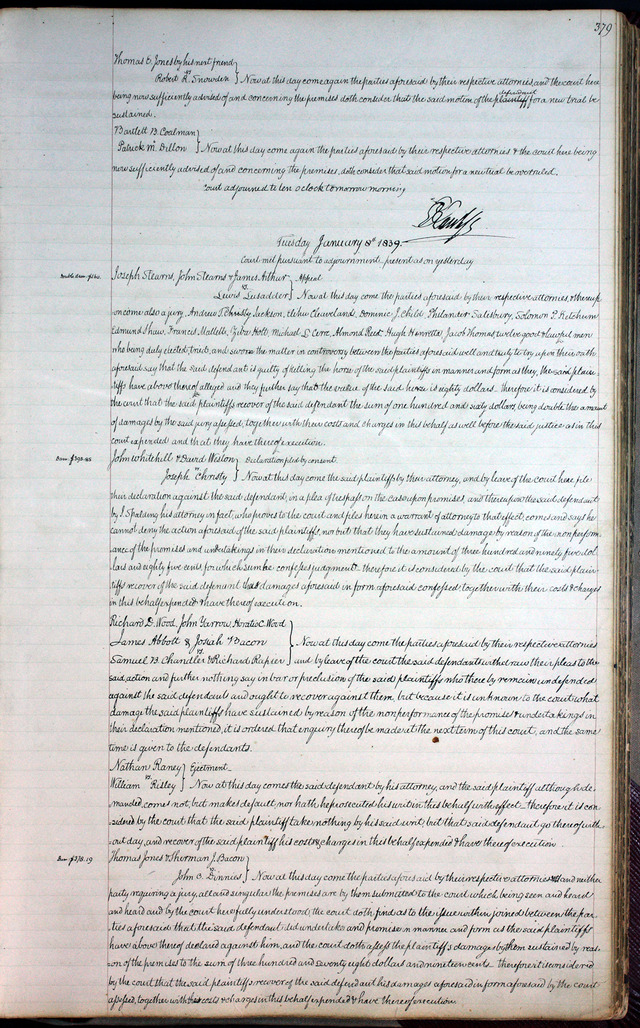 379
Thomas O. Jones by his next friend
vs
Robert R. Snowden } Now at this day come again the parties aforesaid by their respective attornies and the court here
being now sufficiently advised of and concerning the premises doth consider that the said motion of the plaintiff defendant for a new trial be
sustained.
Bartlett B Coalman
Patrick M Dillon } Now at this day come again the parties aforesaid by their respective attornies & the court here being
now sufficiently advised of and concerning the premises, doth consider that said motion for a new trial be overruled.
Court adjourned to ten o clock tomorrow morning
Tuesday January 8th 1839.
Court met pursuant to adjournment. present as on yesterday
Joseph Stearns, John Stearns & James Arthur } Appeal
vs
Lewis Lusadder } Now at this day come the parties aforesaid by their respective attornies, & thereup
on come also a jury, Andrew T. Christy, Jackson, Elihu Cleaveland, Dominic J. Child, Philander Salisbury, Solomon P. Ketchum
Edmund Shaw, Francis Mallette, Ziba Holt, Michael S. Cerre, Almond Reed, Hugh Henrette, Jacob Thomas, twelve good & lawful men
who being duly elected, tried, and sworn the matter in controversy between the parties aforesaid well and truly to try upon their oath
aforesaid say that the said defendant is guilty of killing the horse of the said plaintiffs in manner and form as they, the said plain-
tiffs have above thereof alleged and they further say that the value of the said horse is eighty dollars. therefore it is considered by
the court that the said plaintiffs recover of the said defendant the sum of one hundred and sixty dollars, being double the amount
of damages by the said jury assessed, together with their costs and charges in this behalf as well before the said justice as in this
court expended and that they have thereof execution.
Dam $395.85
John Whitehill & David Weston } Declaration filed by consent.
vs
Joseph Christy } Now at this day come the said plaintiffs by their attorney, and by leave of the court here file
their declaration against the said defendant, in a plea of trespass on the case upon promises, and thereupon the said defendant
by J. Spalding his attorney in fact, who proves to the court and files herein a warrant of attorney to that effect, comes and says he
cannot deny the action aforesaid of the said plaintiffs, nor but that they have sustained damage by reason of the nonperform-
ance of the promises and undertakings in their declaration mentioned to the amount of three hundred and ninety five dol-
lars and eighty five cents, for which sum he confesses judgment. therefore it is considered by the court that the said plain-
tiffs recover of the said defendant the damages aforesaid in form aforesaid confessed, together with their costs & charges
in this behalf expended & have thereof execution.
Richard D. Wood, John Yarrow, Horatio C. Wood
James Abbott & Josiah F. Bacon } Now at this day come the parties aforesaid by their respective attornies
vs
Samuel B Chandler & Richard Rapier } and by leave of the court the said defendants withdraw their pleas to the
said action and further nothing say in bar or preclusion of the said plaintiffs who thereby remain undefended
against the said defendants and ought to recover against them, but because it is unknown to the court what
damage the said plaintiffs have sustained by reason of the nonperformance of the promises & undertakings in
their declaration mentioned, it is ordered that inquiry thereof be made at the next term of this court, and the same
time is given to the defendants.
Nathan Raney } Ejectment.
vs
William Risley } Now at this day comes the said defendant by his attorney, and the said plaintiff although de-
manded, comes not, but makes default, nor hath he prosecuted his writ in this behalf with effect. therefore it is con-
sidered by the court that the said plaintiff take nothing by his said writ, but that said defendant go thereof with-
out day, and recover of the said plaintiff his costs & charges in this behalf expended & have thereof execution.
Dam $378.19
Thomas Jones & Thurman J. Bacon
vs
John O. Dinnies } Now at this day come the parties aforesaid by their respective attornies and neither
party requiring a jury, all and singular the premises are by them submitted to the court which being seen and heard
and heard and by the court here fully understood, the court doth find as to the issue within joined between the par-
ties aforesaid that the said defendant did undertake and promise in manner and form as the said plaintiffs
have above thereof declared against him, and the court doth assess the plaintiffs damages by them sustained by reas-
on of the premises to the sum of three hundred and seventy eight dollars and nineteen cents. therefore it is considered
by the court that the said plaintiffs recover of the said defendant his damages aforesaid in form aforesaid by the court
assessed, together with their costs & charges in this behalf expended & have thereof execution.